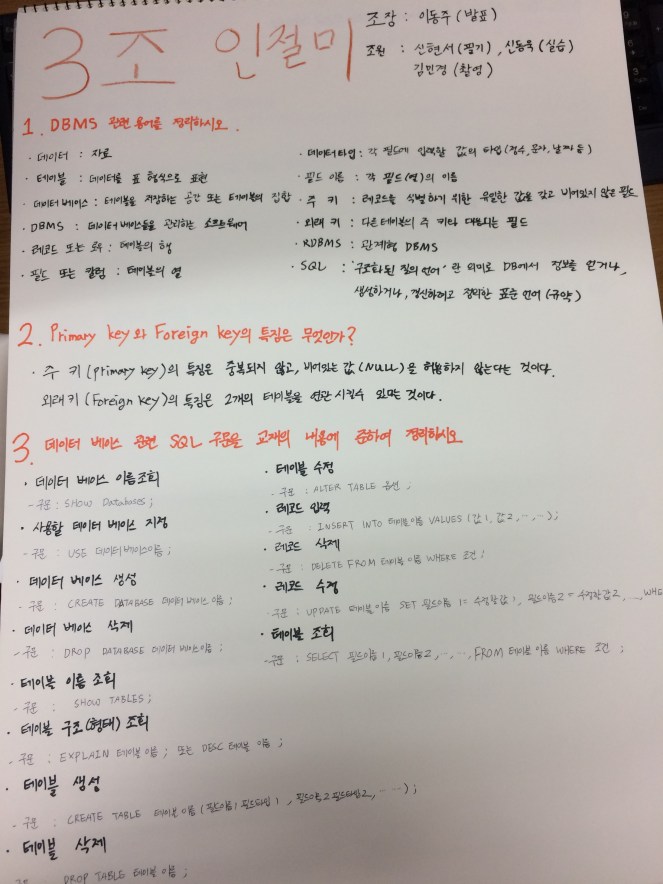 3조 인절미
조장 : 이동주 (발표)
조원 : 신현서 (필기), 신동욱 (실습)
김민경 (촬영)
1. DBMS 관련 용어를 정리하시오.
· 데이터 : 자료
· 테이블 : 데이터를 표 형식으로 표현
· 데이터 베이스 : 테이블을 저장하는 공간 또는 테이블의 집합
· DBMS : 데이터 베이스들을 관리하는 소프트웨어
· 레코드 또는 로우 : 테이블의 행
· 필드 또는 칼럼 : 테이블의 열
· 데이터 타입 : 각 필드에 입력할 값의 타입 (정수, 문자, 날짜 등)
· 필드 이름 : 각 필드(열)의 이름
· 주 키 : 레코드를 식별하기 위한 유일한 값을 갖고 비어있지 않은 필드
· 외래 키 : 다른 테이블의 주 키와 대응되는 필드
· RDBMS : 관계형 DBMS
· SQL : '구조화된 질의 언어' 란 의미로 DB에서 정보를 얻거나,
생성하거나, 갱신하려고 정의한 표준 언어 (규약)
2. Primary key와 Foreign key의 특징은 무엇인가?
· 주 키 (primary key)의 특징은 중복되지 않고, 비어있는 값 (NULL)을 허용하지 않는다는 것이다.
외래 키 (Foreign key)의 특징은 2개의 테이블을 연관 시킬수 있다는 것이다.
3. 데이터 베이스 관련 SQL 구문을 교재의 내용에 준하여 정리하시오
· 데이터 베이스 이름 조회
- 구문 : SHOW Databases ;
· 사용할 데이터 베이스 지정
- 구문 : USE 데이터베이스이름 ;
· 데이터 베이스 생성
- 구문 : CREATE DATABASE 데이터 베이스 이름 ;
· 데이터 베이스 삭제
- 구문 : DROP DATABASE 데이터 베이스이름 ;
· 테이블 이름 조회
- 구문 : SHOW TABLES ;
· 테이블 구조(형태) 조회
- 구문 : EXPLAIN 테이블 이름 ; 또는 DESC 테이블 이름 ;
· 테이블 생성
- 구문 : CREATE TABLE 테이블 이름 (필드이름1 필드타입 1 , 필드이름2 필드타입2, ‥ ‥) ;
· 테이블 삭제
구문 : DROP TABLE 테이블 이름 ;
· 테이블 수정
- 구문 : ALTER TABLE 옵션 ;
· 레코드 입력
- 구문 : INSERT INTO 테이블 이름 VALUES (값 1, 값 2, ‥, ‥) ;
· 레코드 삭제
- 구문 : DELETE FROM 테이블 이름 WHERE 조건 ;
· 레코드 수정
- 구문 : UPDATE 테이블 이름 SET 필드이름 1 = 수정할값 1, 필드이름 2 = 수정할값 2, ‥, WHE
· 테이블 조회
- 구문 : SELECT 필드이름 1, 필드이름2, ‥, ‥, FROM 테이블 이름 WHERE 조건 ;